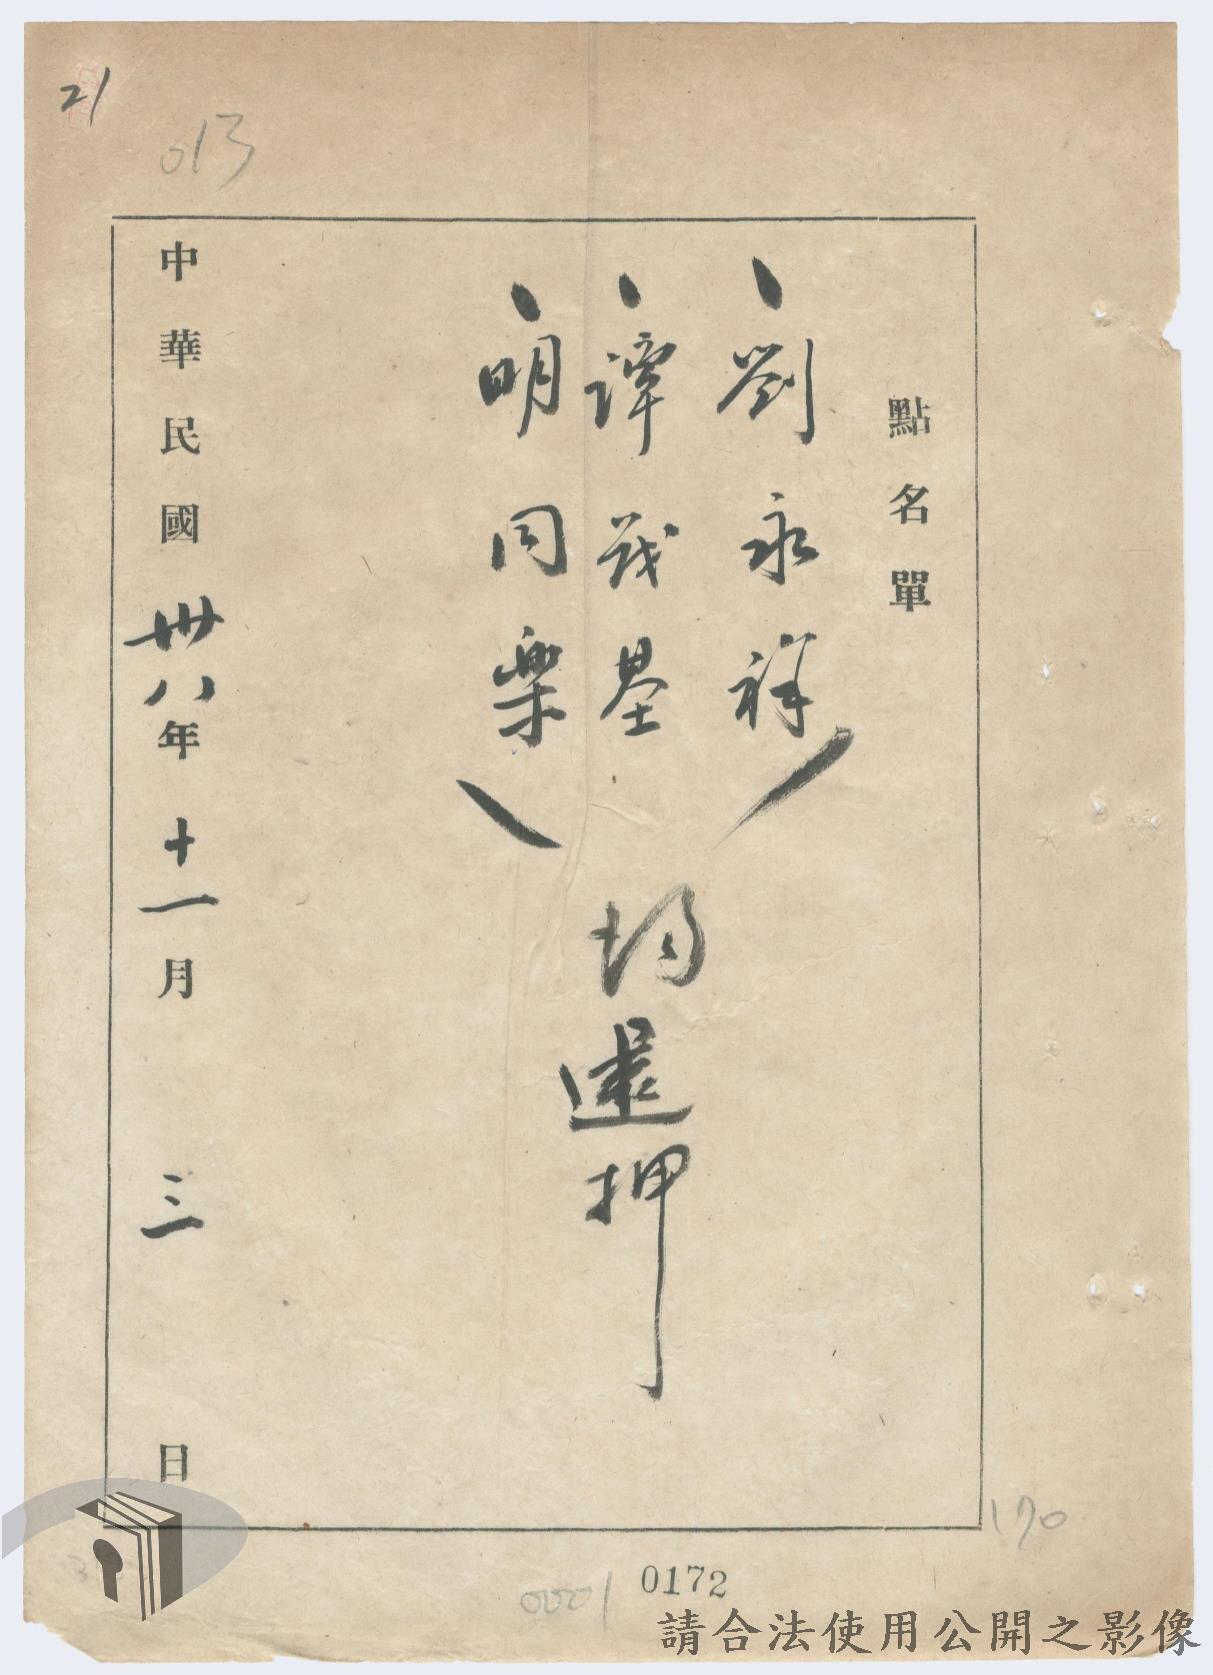 21
013
點名單
劉永祥
譚茂基
明同樂
均還押
中華民國卅八年十一月三日
170
0001
0172
請合法使用公開之影像